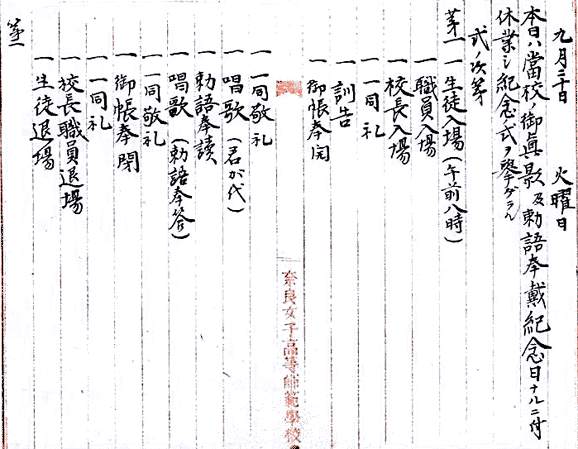 九月三十日 火曜日
本日ハ當校ノ御眞影及勅語奉戴紀念日ナルニ付
休業シ紀念ノ式ヲ擧ゲラル
式次第
第一
一 生徒入場(午前八時)
一 職員入場
一 校長入場
一 一同礼
一 訓告
一 御帳奉開
奈良女子高等師範學校
一 一同敬礼
一 唱歌(君が代)
一 勅語奉読
一 唱歌(勅語奉答)
一 一同敬礼
一 御帳奉閉
一 一同礼
一 校長職員退場
一 生徒退場
第二